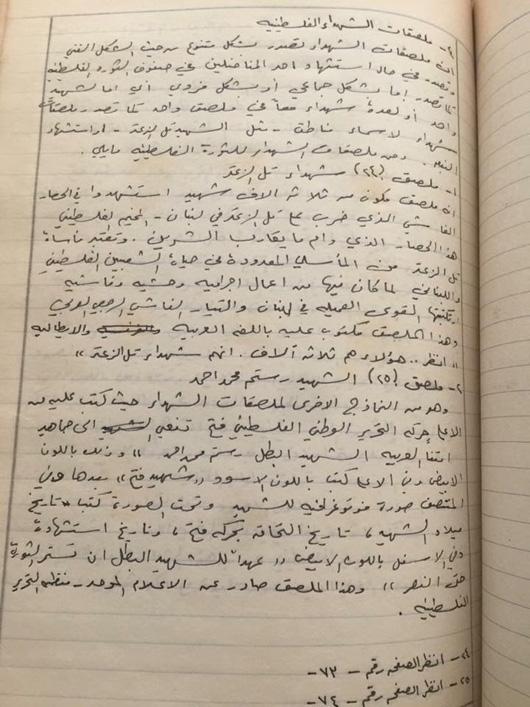 ٢- ملصقات الشهداء الفلسطينيه
ان ملصقات الشهداء تصدر بشكل متنوع من حيث الشكل الفني
وتصدر في حال استشهاد احد المناضلين في صفوف الثورة الفلسطينيه
تصدر اما بشكل جماعي أو بشكل فردي أي اما لشهيد
واحد أو لعدة شهداء معاً في ملصق واحد تصدر ملصقات
شهداء لاسماء مناطق - مثل الشهيد تل الزعتر - استشهاد
ومن ملصقات الشهداء للثورة الفلسطينيه مايلي.
١- ملصق (٢٤) شهداء تل الزعتر
ان ملصق مكون من ثلاثة الاف شهيد استشهدوا في الحصار
الفاشي الذي ضرب على تل الزعتر في لبنان - المخيم الفلسطيني
هذا الحصار الذي دام ما يقارب الشهرين. وتعتبر مأساة
تل الزعتر من المآسي المعدودة في حياة الشعبين الفلسطيني
واللبناني لما كان فيها من اعمال اجراميه وحشيه وفاشيه
ارتكبتها القوى العميله في لبنان والتيار الفاشي الرجعي العربي
وهذا الملصق مكتوب عليه باللغه العربيه والايطاليه
" انظر.. هؤلاء هم ثلاثة آلاف. انهم شهداء تل الزعتر "
٢- ملصق (٢٥) الشهيد رستم محمد احمد
وهو من النماذج الاخرى لملصقات الشهداء حيث كتب عليه من
الاعلى حركة التحرير الوطني الفلسطيني فتح تنعي الى جماهير
امتنا العربيه الشهيد البطل رستم محمد احمد " وذلك باللون
الابيض ومن الاعلى كتب باللون الاسود " شهيد فتح " بعدها في
المنتصف صورة فوتوغرافيه للشهيد وتحت الصورة كتب " تاريخ
ميلاد الشهيد، تاريخ التحاقه بحركة فتح، وتاريخ استشهاده
وفي الاسفل باللون الابيض " عهداً للشهيد البطل ان تستمر الثورة
حتى النصر " وهذا الملصق صادر عن الاعلام الموحد - منظمة التحرير
الفلسطينيه.
٢٤- انظر الصفحه رقم - ٧٣ -
٢٥- انظر الصفحه رقم - ٧٤ -